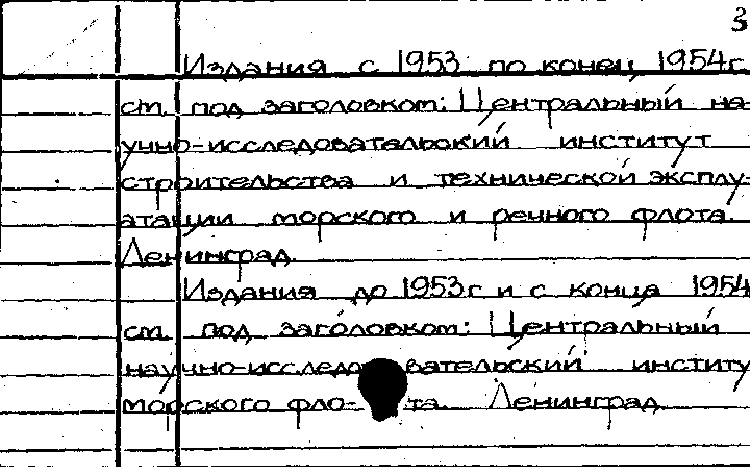 3
Издания с 1953 по конец 1954г
см. под заголовком: Центральный на-
учно-исследовательский институт
строительства и технической эксплу-
атации морского и речного флота.
Ленинград.
Издания до 1953г и с конца 1954
см. под заголовком: Центральный
научно-исследовательский институ
морского фло-та. Ленинград